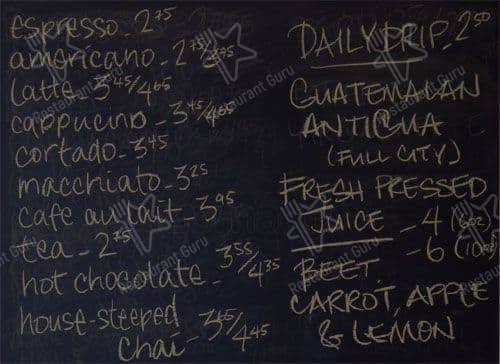 espresso 2.75
americano - 2.75
latte 3.45/4.05
cappucino - 3.45/4.05
cortado - 3.45
macchiato - 3.25
cafe au lait - 3.95
tea - 2.75
hot chocolate - 3.55/4.35
house-steeped
chai - 3.65/4.45
DAILY DRIP. 2.50
GUATEMALAN
ANTIGUA
(FULL CITY)
FRESH PRESSED
JUICE - 4
- 6
BEET,
CARROT, APPLE
& LEMON
Restaurant Guru